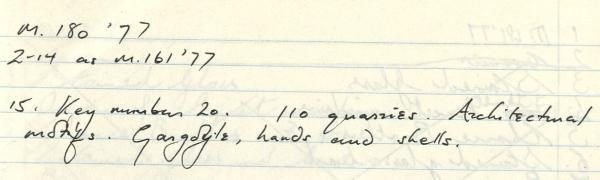 M. 180 '77
2-14 as M.161 '77
15. Key number 20. 110 quarries. Architectural
motifs. Gargoyle, hands and shells.